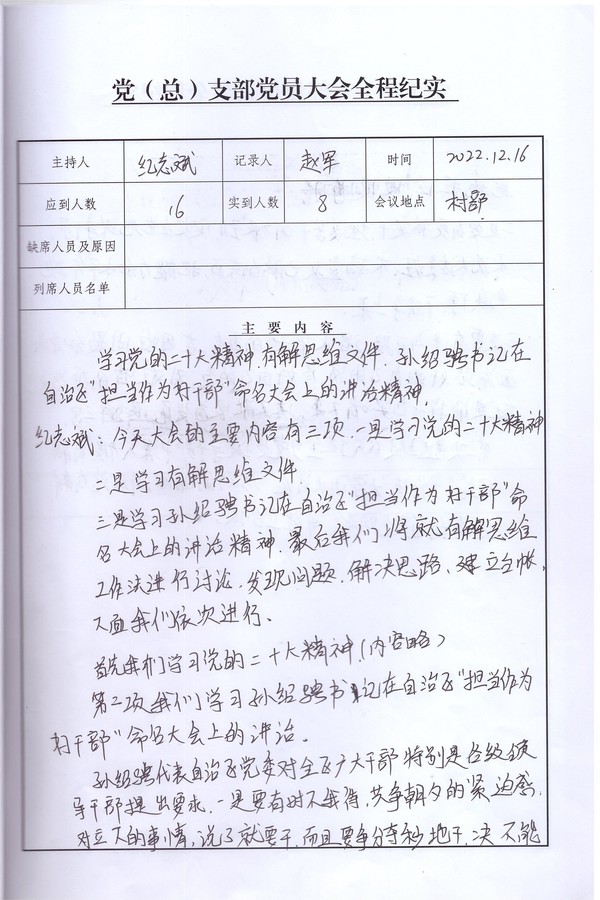 党（总）支部党员大会全程纪实
主持人 纪志斌 记录人 赵军 时间 2022.12.16
应到人数 16 实到人数 8 会议地点 村部
缺席人员及原因
列席人员名单
主要内容
学习党的二十大精神,有解思维文件.孙绍骋书记在
自治区"担当作为好干部"命名大会上的讲话精神,
纪志斌：今天大会的主要内容有三项.一是学习党的二十大精神
二是学习有解思维文件.
三是学习孙绍骋书记在自治区"担当作为好干部"命
名大会上的讲话精神.最后我们将就有解思维
工作法进行讨论.发现问题.解决思路、建立台帐,
下面我们依次进行、
首先我们学习党的二十大精神.(内容略)
第二项我们学习孙绍骋书记在自治区"担当作为
好干部"命名大会上的讲话.
孙绍骋代表自治区党委对全区广大干部特别是各级领
导干部提出要求.一是要有时不我待,共争朝夕的紧迫感.
对立下的事情,说了就要干,而且要争分夺秒地干,决不能